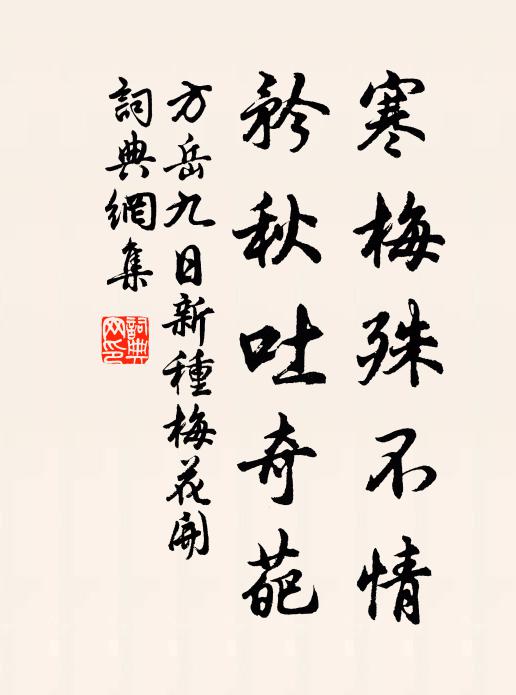 寒梅殊不情
矜秋吐奇葩
方岳九日新種梅花開
詞典網集
詞典網印